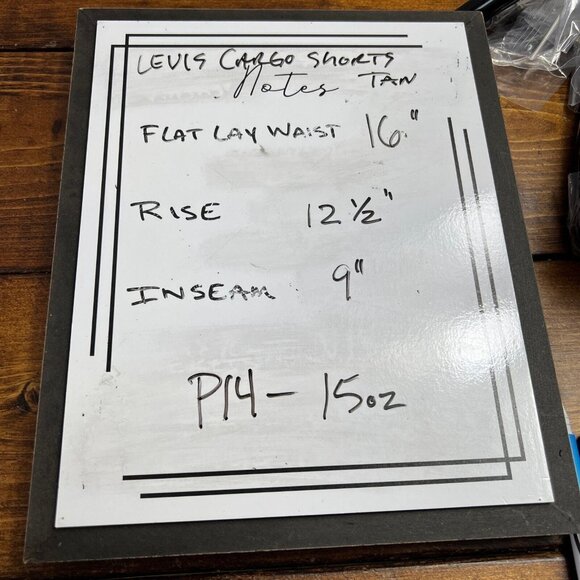 LEVIS CARGO SHORTS
Notes TAN
FLAT LAY WAIST 16"
RISE 12 ½"
INSEAM 9"
P14 - 15oz